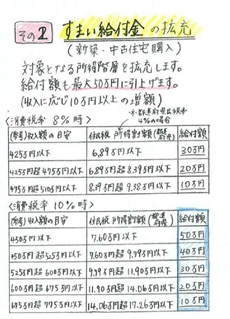 その2 すまい給付金の拡充
(新築・中古住宅購入)
対象となる所得階層を拡充します。
給付額も最大50万円に引上げます。
(収入に応じ10万円以上の増額)
〈消費税率 8%時〉
(参考)収入額の目安 住民税 所得割額 給付額
425万円以下 6.89万円以下 30万円
425万円超 475万円以下 6.89万円超 8.39万円以下 20万円
475万円超 510万円以下 8.39万円超 9.38万円以下 10万円
〈消費税率 10%時〉
(参考)収入額の目安 住民税 所得割額 給付額
450万円以下 7.60万円以下 50万円
450万円超 525万円以下 7.60万円超 9.79万円以下 40万円
525万円超 600万円以下 9.79万円超 11.90万円以下 30万円
600万円超 675万円以下 11.90万円超 14.06万円以下 20万円
675万円超 775万円以下 14.06万円超 17.26万円以下 10万円